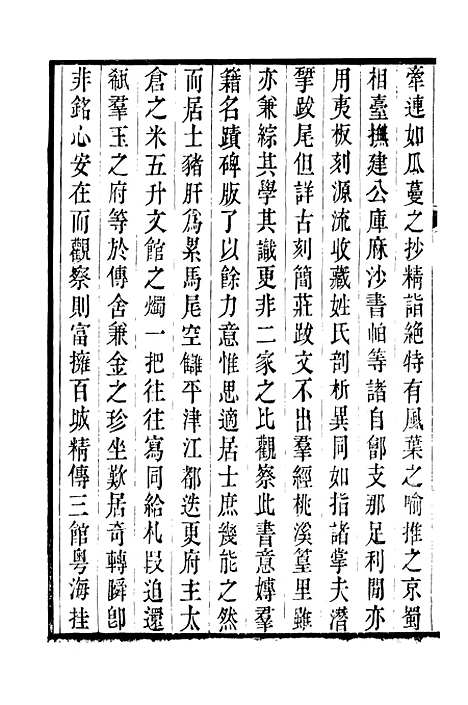 牽連如瓜蔓之抄精詣絕特有風葉之喻推之京蜀
相臺撫建公庫麻沙書帕等諸自鄶支那足利閒亦
用夷板刻源流收藏姓氏剖析異同如指諸掌夫潛
揅跋尾但詳古刻簡莊跋文不出羣經桃溪篁里雖
亦兼綜其學其識更非二家之比觀察此書意嫥羣
籍名蹟碑版了以餘力意惟思適居士庶幾能之然
而居士豬肝爲累馬尾空讎平津江都迭更府主太
倉之米五升文館之燭一把往往寫同給札叚迫還
瓻羣玉之府等於傳舍兼金之珍坐歎居奇轉瞬卽
非銘心安在而觀察則富擁百城精傳三館粤海挂